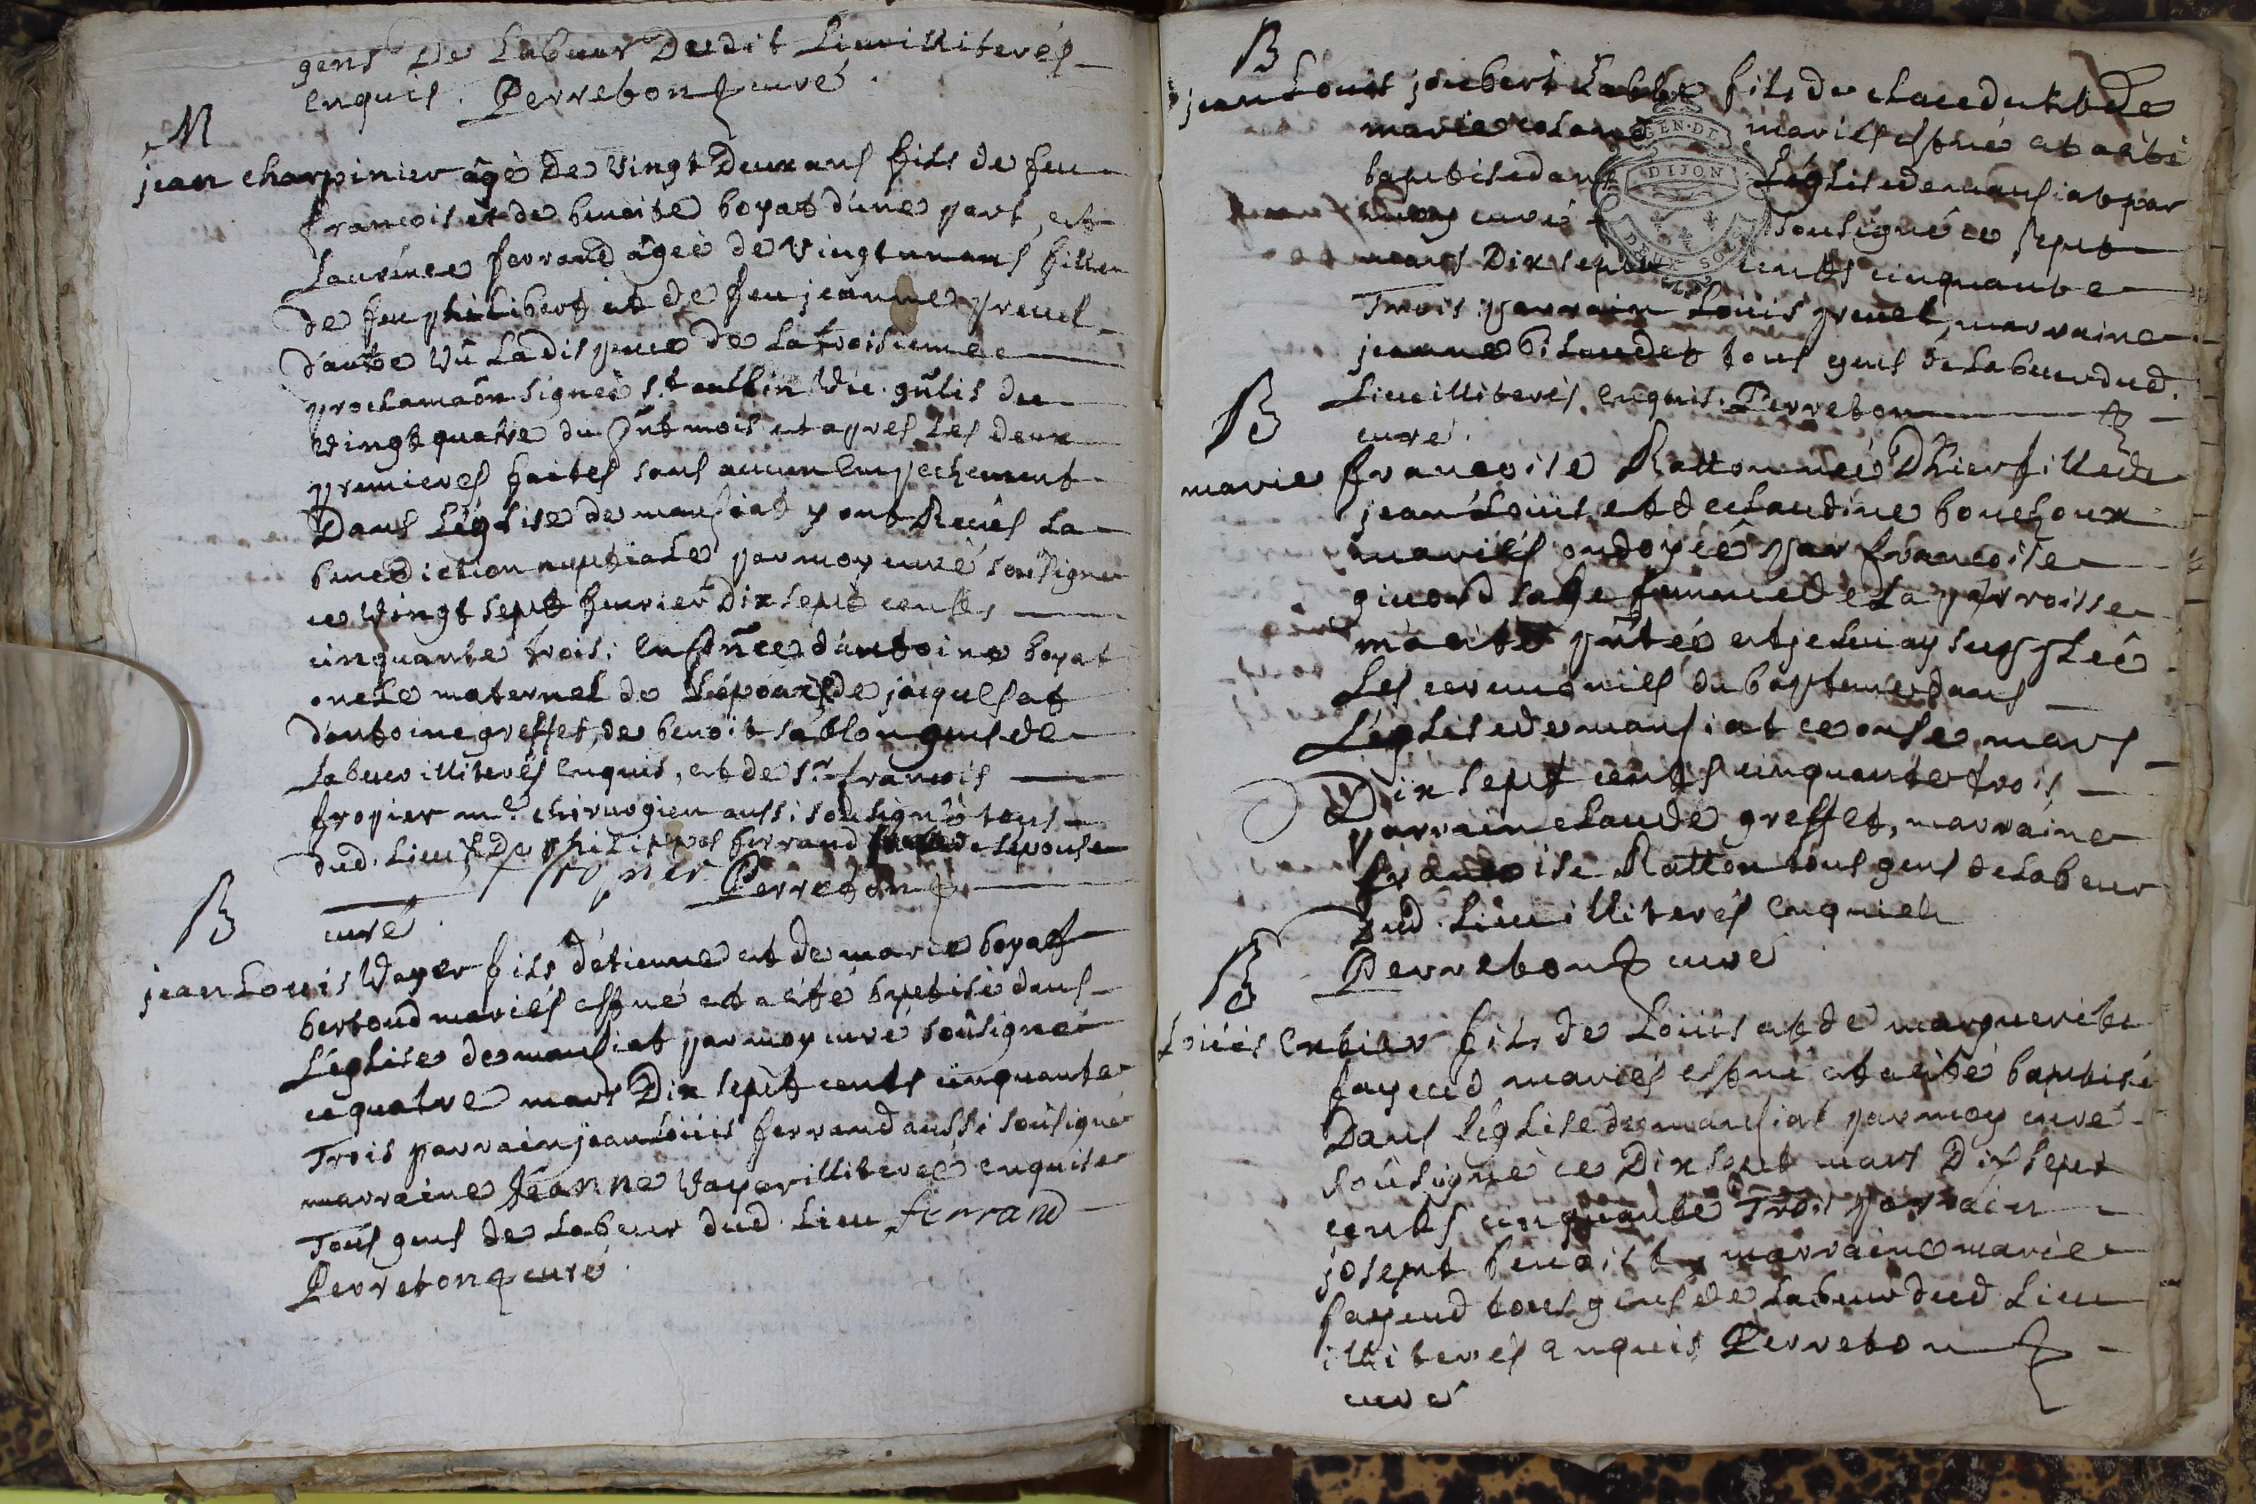 gens De Labeur Dudit Lieu illiterés
enquis. Perreton curé.
M
jean charpinier âgé De vingt Deux ans fils de feu
francois et de benoite boyat d'une part, et
Laurence ferrand âgée de vingt un ans fille
de feu philibert et de feu jeanne
d'autre vû La dispence de La troisieme
proclamaôn signée St. vic. gnlis du
vingt quatre du pnt mois et apres Les deux
premieres faites sans aucun Empechement
Dans L'église de mansiat y ont Reçûs La
benediction nuptiale par moy curé soûsigné
ce vingt sept fevrier Dix sept cents
cinquante trois; En pnce d'antoine boyat
oncle maternel de L'epoux, de jacques et
d'antoine greffet, de benoit sablon gens de
Labeur illiterés enquis, et de Sr. francois
fropier me. chirurgien aussi soûsigné tous
dud. Lieu, De philippes ferrand de Lepouse
fropier Perreton
curé
B
jean Louis Vayer fils d'étienne et de marie boyat
bertoud mariés est né et a été baptisé dans
L'église de mansiat par moy curé soûsigné
ce quatre mars Dix sept cents cinquante
Trois parrain jean Loüis ferrand aussi soûsigné
marraine Jeanne Vayer illiterée enquise
Tous gens de Labeur dud. Lieu ferrand
Perreton curé
B
jean Louis joubert fils de claude et de
marie mariés est né et a été
baptisé dans L'église de mansiat par
moy curé soûsigné ce sept
mars Dix sept cents cinquante
Trois parrain Loüis marraine
jeanne bilaudet tous gens de Labeur dud.
Lieu illiterés enquis. Perreton
curé.
GEN. DE
DIJON
DEUX SOLS
B
marie francoise Ratton née D'hier fille de
jean Loüis et de claudine bouchoux
mariés ondoyée par francoise
givord sage femme de La parroisse
m'a été pntée et je Luiay supplée
Les ceremonies du bapteme dans
L'église de mansiat ce onse mars
Dix sept cents cinquante trois
parrain claude greffet, marraine
francoise Ratton tous gens de Labeur
Dud. Lieu illiterés enquis
Perreton curé
B
Loüis fils de Loüis et de marguerite
mariés est né et a été baptisé
Dans L'église de mansiat par moy curé
soûsigné ce Dix sept mars Dix sept
cents cinquante Trois parrain
josept benoist, marraine marie
tous gens de Labeur dud. Lieu
illiterés enquis Perreton
curé